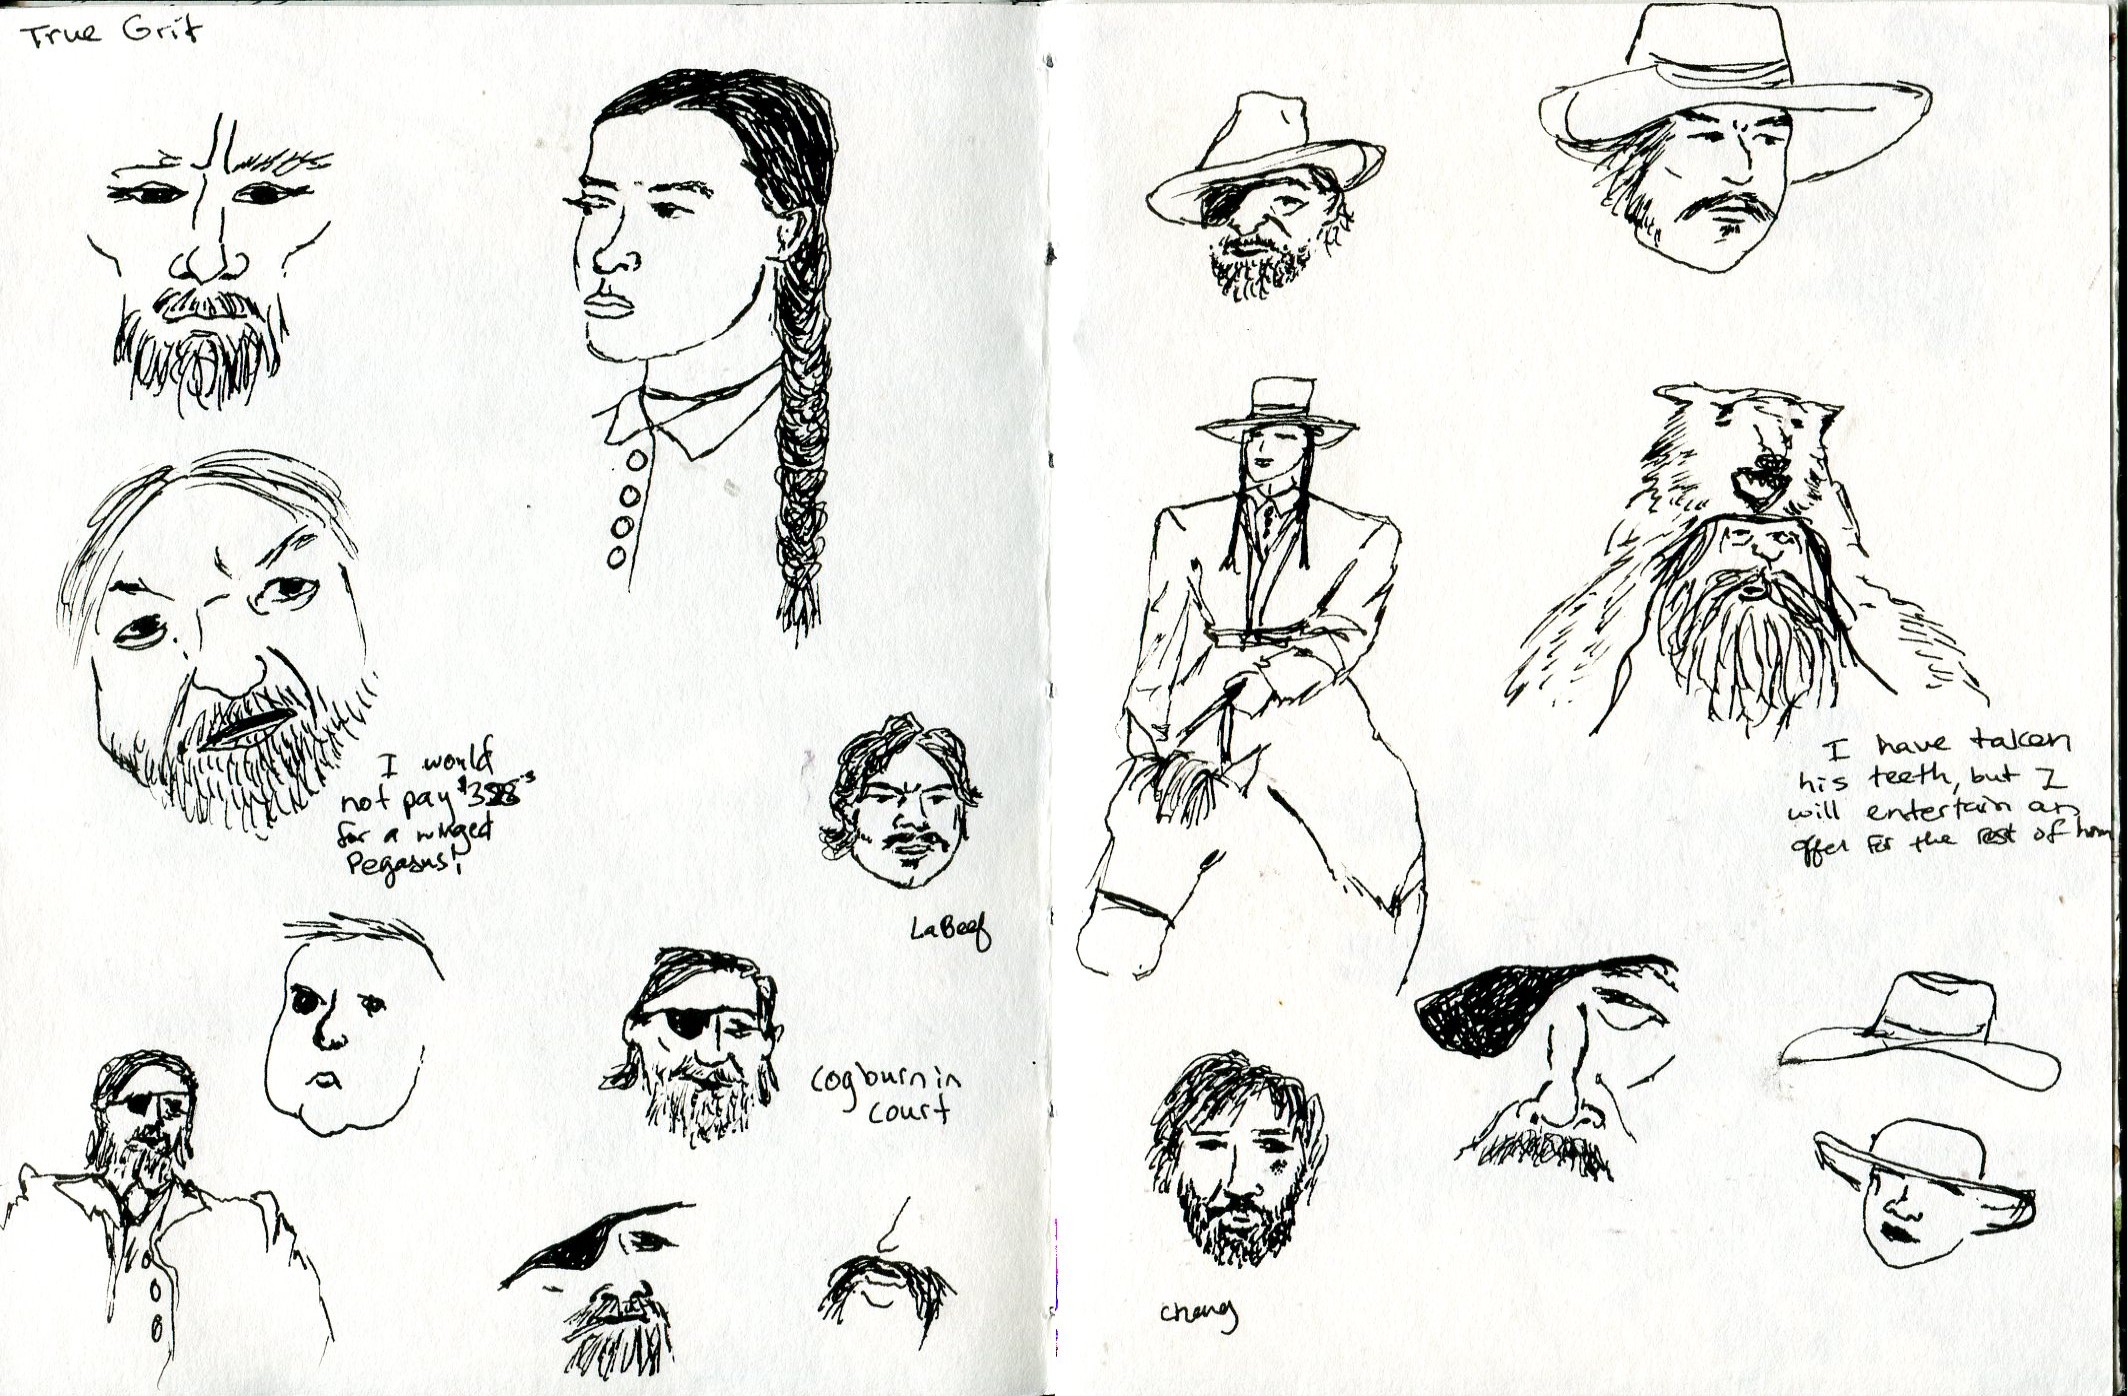 True Grit
I would
not pay
for a winged
Pegasus!
LaBeef
Cogburn in
court
I have taken
his teeth, but I
will entertain an
offer for the rest of him
Chaney